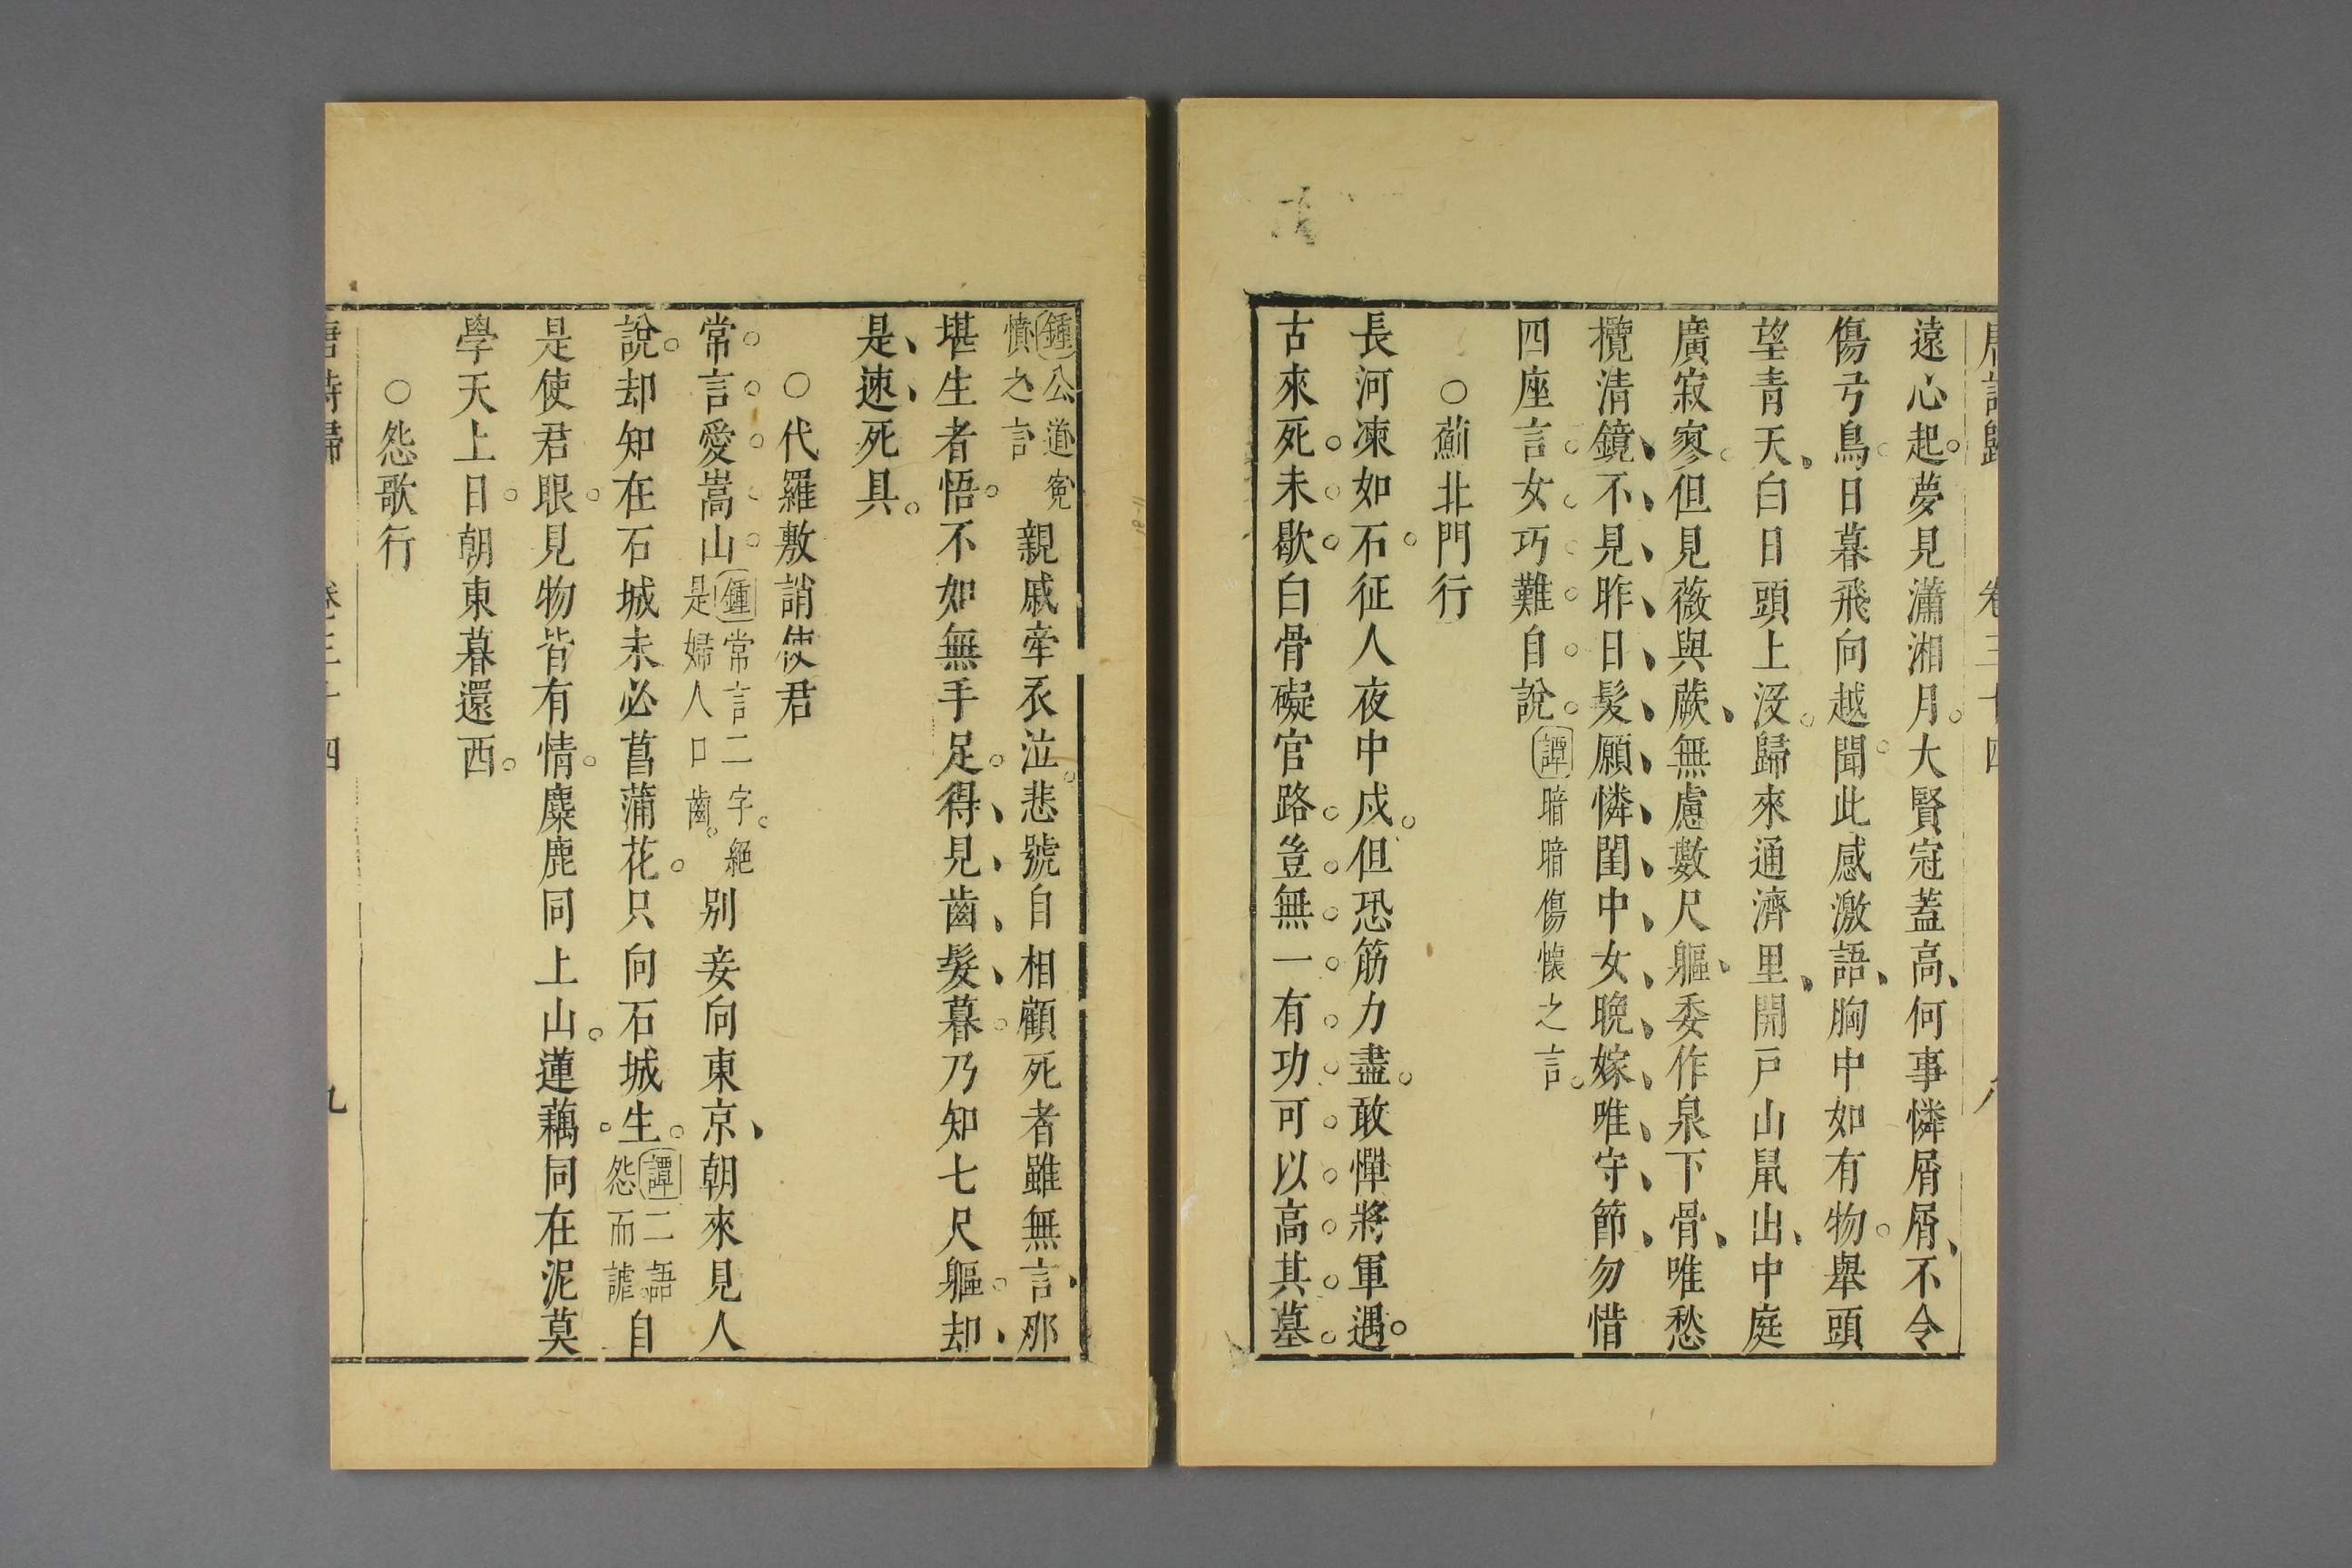 唐詩歸 卷三十四 八
遠心起夢見瀟湘月大賢冠蓋高何事憐屑屑不令
傷弓鳥日暮飛向越聞此感激語胸中如有物舉頭
望青天白日頭上沒歸來通濟里開戸山鼠出中庭
廣寂寥但見薇與蕨無慮數尺軀委作泉下骨唯愁
攬清鏡不見昨日髮願憐閨中女晚嫁唯守節勿惜
四座言女巧難自說譚暗暗傷懷之言
○薊北門行
長河凍如石征人夜中戍但恐筋力盡敢憚將軍遇
古來死未歇白骨礙官路豈無一有功可以高其墓
鍾公道寃
憤之言
親戚牽衣泣悲號自相顧死者雖無言那
堪生者悟不如無手足得見齒髮暮乃知七尺軀却
是速死具
○代羅敷誚使君
常言愛嵩山
鍾常言二字絕
是婦人口齒
別妾向東京朝來見人
說却知在石城未必菖蒲花只向石城生
譚二語
怨而謔
自
是使君眼見物皆有情麋鹿同上山蓮藕同在泥莫
學天上日朝東暮還西
○怨歌行
唐詩歸 卷三十四 九